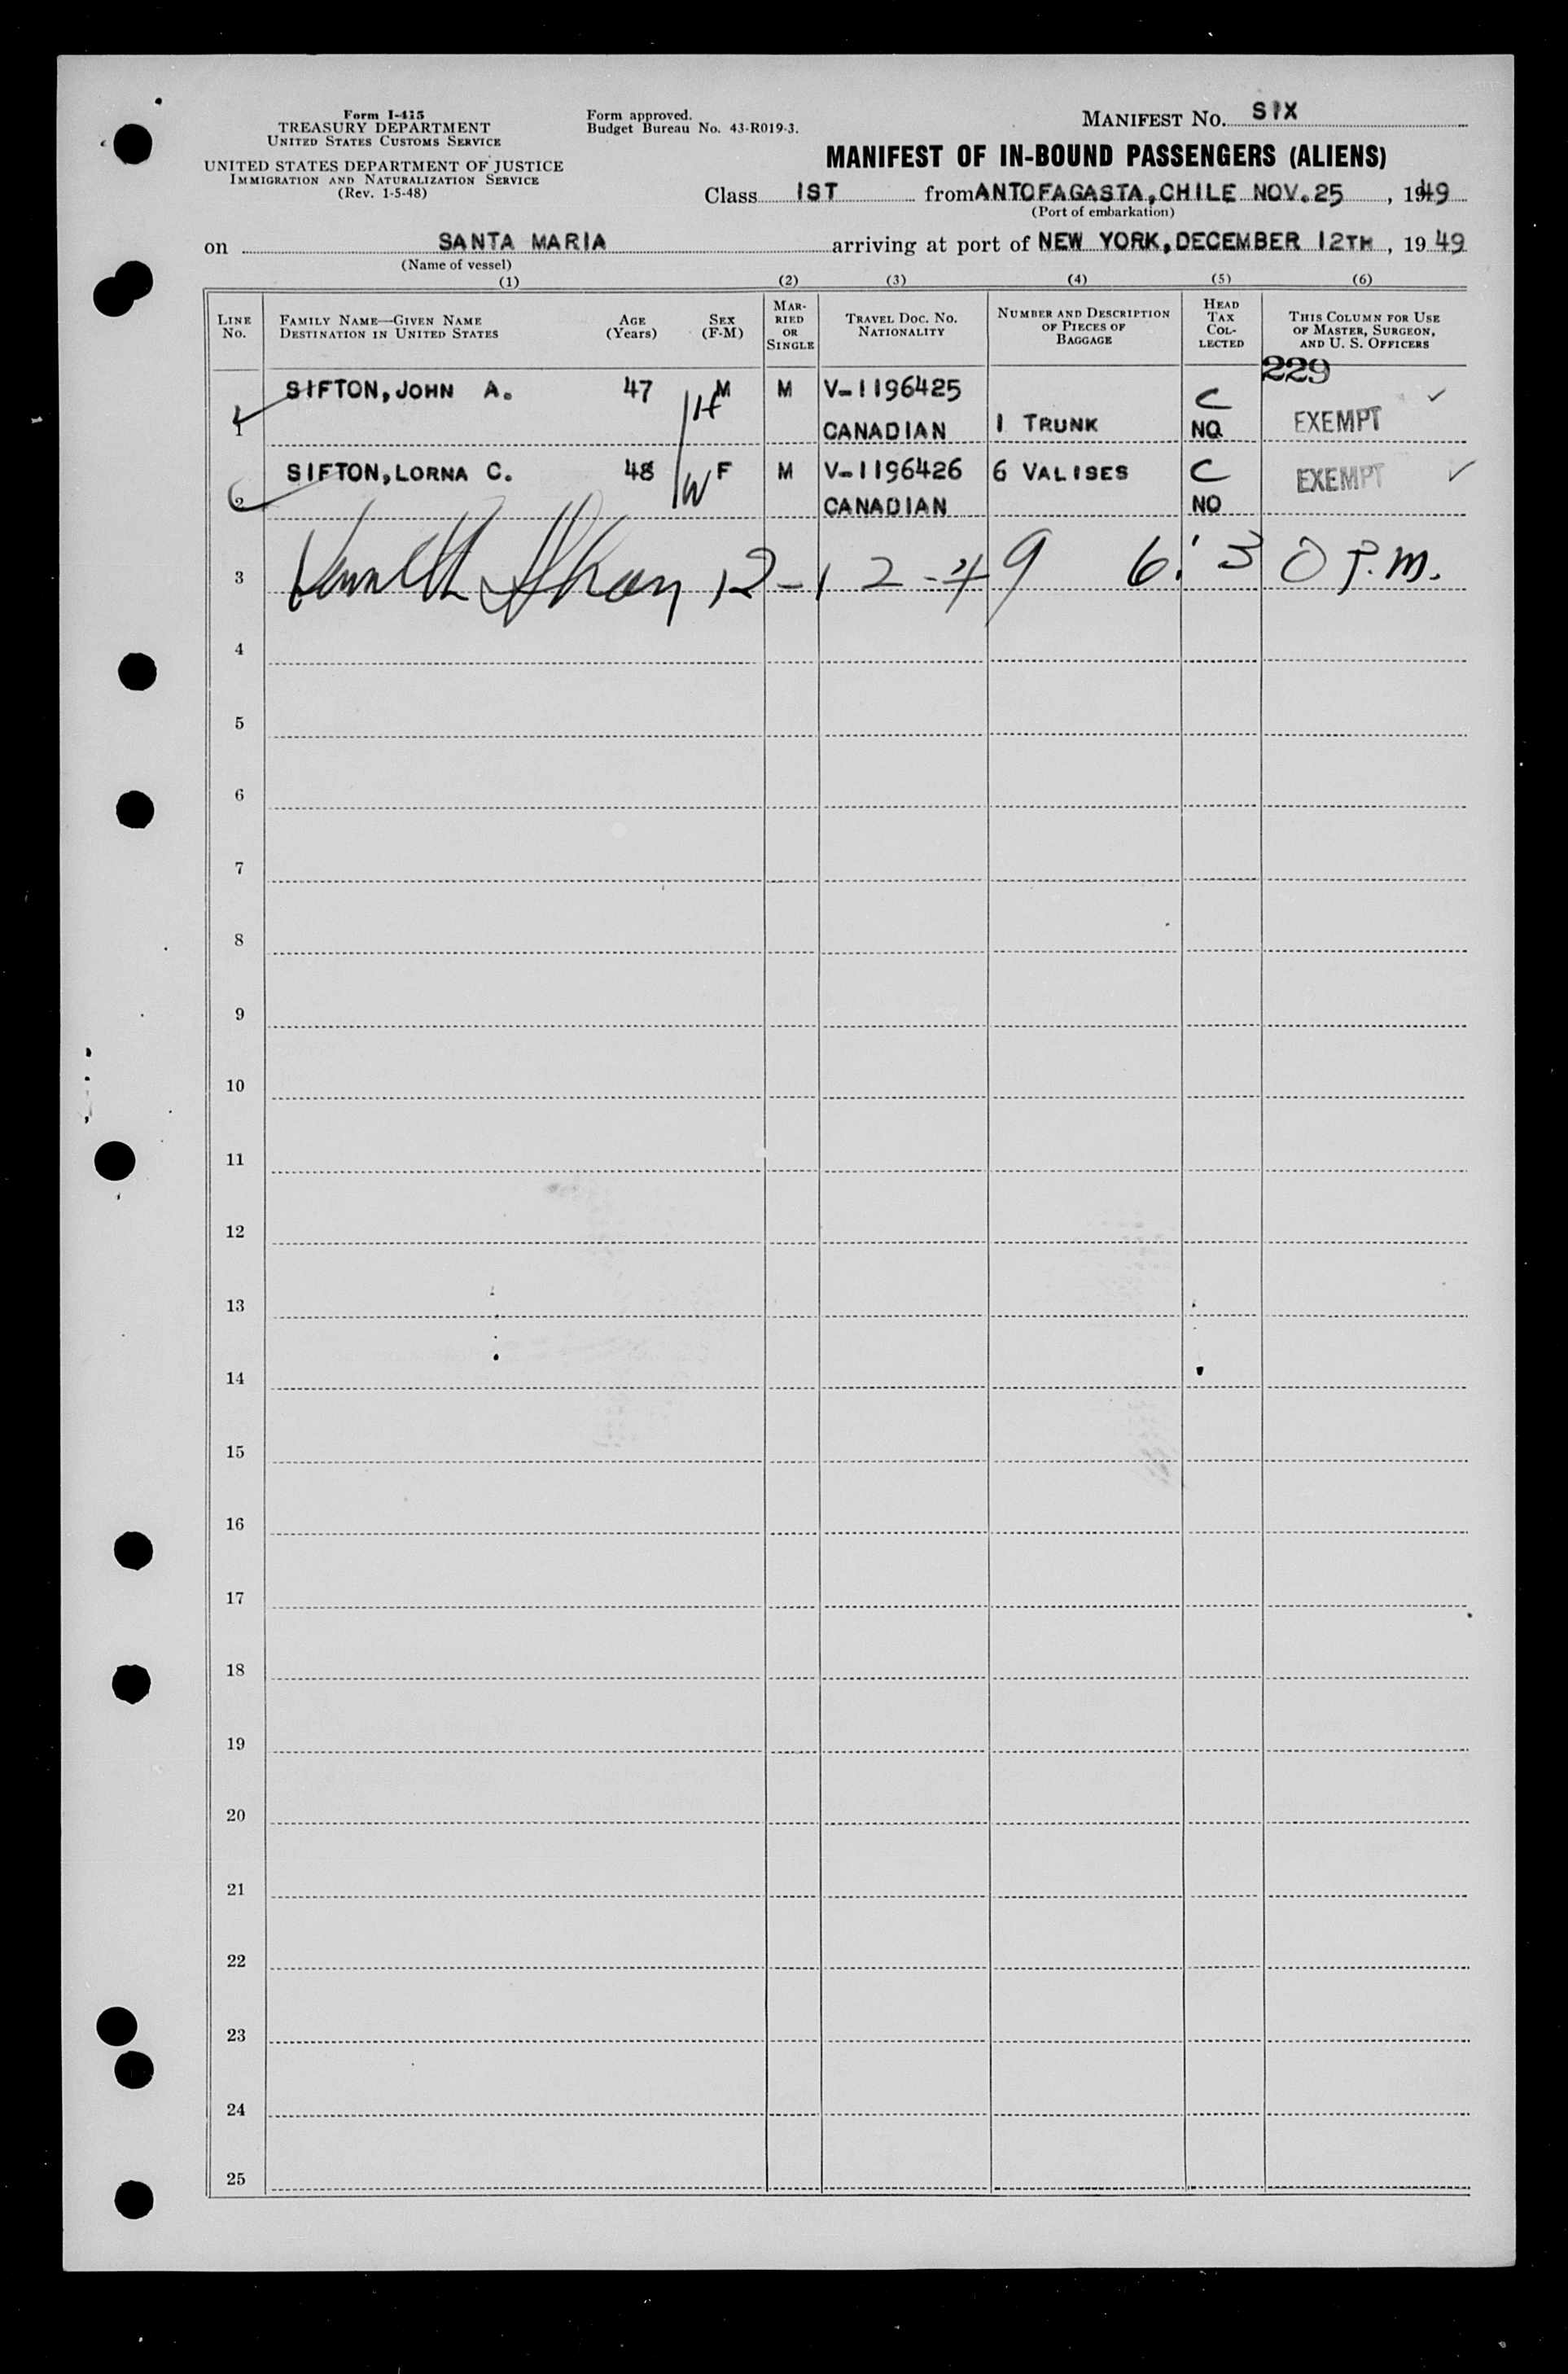 Form I-415
TREASURY DEPARTMENT
UNITED STATES CUSTOMS SERVICE
UNITED STATES DEPARTMENT OF JUSTICE
IMMIGRATION AND NATURALIZATION SERVICE
(Rev. 1-5-48)
Form approved.
Budget Bureau No. 43-R019-3.
MANIFEST NO. SIX
MANIFEST OF IN-BOUND PASSENGERS (ALIENS)
Class 1ST from ANTOFAGASTA, CHILE NOV. 25, 1949
(Port of embarkation)
on SANTA MARIA arriving at port of NEW YORK, DECEMBER 12TH, 1949
(Name of vessel)
(1) (2) (3) (4) (5) (6)
LINE NO.
FAMILY NAME—GIVEN NAME
DESTINATION IN UNITED STATES
AGE (Years)
SEX (F-M)
MAR-RIED OR SINGLE
TRAVEL DOC. NO.
NATIONALITY
NUMBER AND DESCRIPTION OF PIECES OF BAGGAGE
HEAD TAX COL-LECTED
THIS COLUMN FOR USE OF MASTER, SURGEON, AND U. S. OFFICERS
229
SIFTON, JOHN A. 47 M M V-1196425 C
1 H CANADIAN 1 TRUNK NO EXEMPT
SIFTON, LORNA C. 48 F M V-1196426 6 VALISES C EXEMPT
2 W CANADIAN NO
3 12-12-49 6:30 P.M.
4
5
6
7
8
9
10
11
12
13
14
15
16
17
18
19
20
21
22
23
24
25